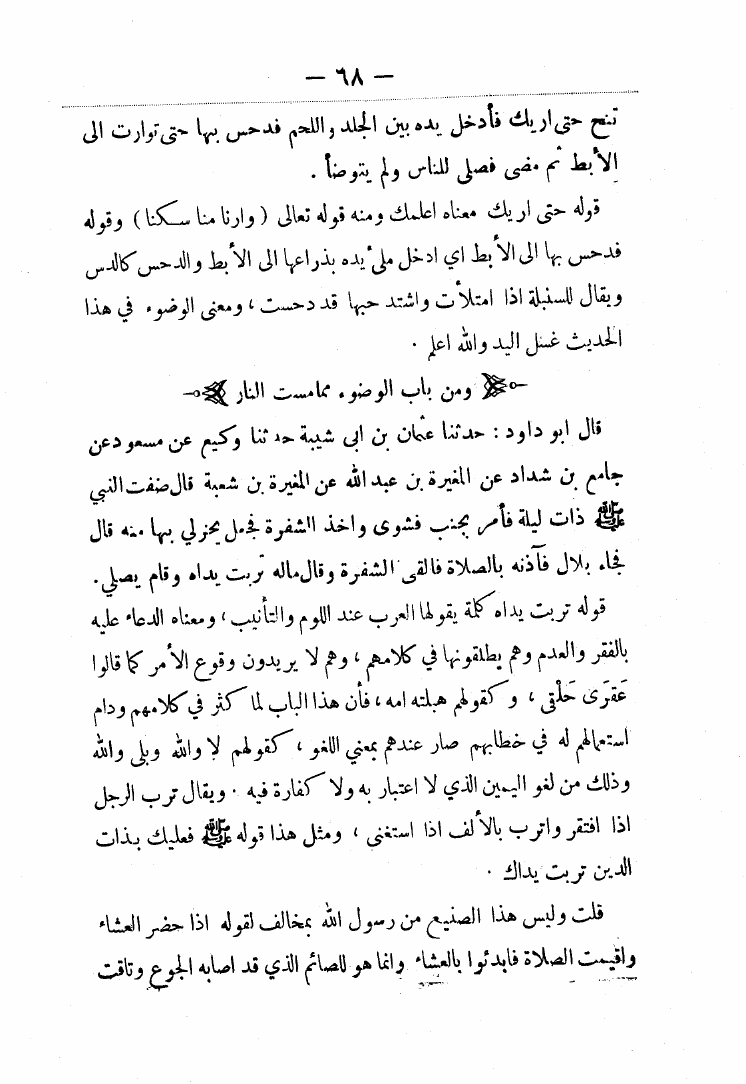 — ٦٨ —
تنح حتى اريك فأدخل يده بين الجلد واللحم فدحس بها حتى توارت الى
الأبط ثم مضى فصلى للناس ولم يتوضأ .
قوله حتى اريك معناه اعلمك ومنه قوله تعالى ( وارنا منا سكنا ) وقوله
فدحس بها الى الأبط اي ادخل ملئ يده بذراعها الى الأبط والدحس كالدس
ويقال للسنبلة اذا امتلأت واشتد حبها قد دحست ، ومعنى الوضوء في هذا
الحديث غسل اليد والله اعلم .
ومن باب الوضوء ممامست النار
قال ابو داود : حدثنا عثمان بن ابى شيبة حدثنا وكيع عن مسعود عن
جامع بن شداد عن المغيرة بن عبد الله عن المغيرة بن شعبة قال ضفت النبي
ﷺ ذات ليلة فأمر بجنب فشوى واخذ االشفرة فجعل يحزلي بها منه قال
فجاء بلال فآذنه بالصلاة فالقى الشفرة وقال ماله تربت يداه وقام يصلي .
قوله تربت يداه كلمة يقولها العرب عند اللوم والتأنيب ، ومعناه الدعاء عليه
بالفقر والعدم وهم يطلقونها في كلامهم ، وهم لا يريدون وقوع الأمر كما قالوا
عَقرَى حَلْقى ، وكقولهم هبلته امه ، فأن هذا الباب لما كثر في كلامهم ودام
استعمالهم له في خطابهم صار عندهم بمعني اللغو ، كقولهم لا والله وبلى والله
وذلك من لغو اليمين الذي لا اعتبار به ولا كفارة فيه . ويقال ترب الرجل
اذا افتقر واترب بالألف اذا استغنى ، ومثل هذا قوله ﷺ فعليك بذات
الدين تربت يداك .
قلت وليس هذا الصنيع من رسول الله بمخالف لقوله اذا حضر العشاء
واقيمت الصلاة فابدئوا بالعشاء وانما هو للصائم الذي قد اصابه الجوع وتاقت